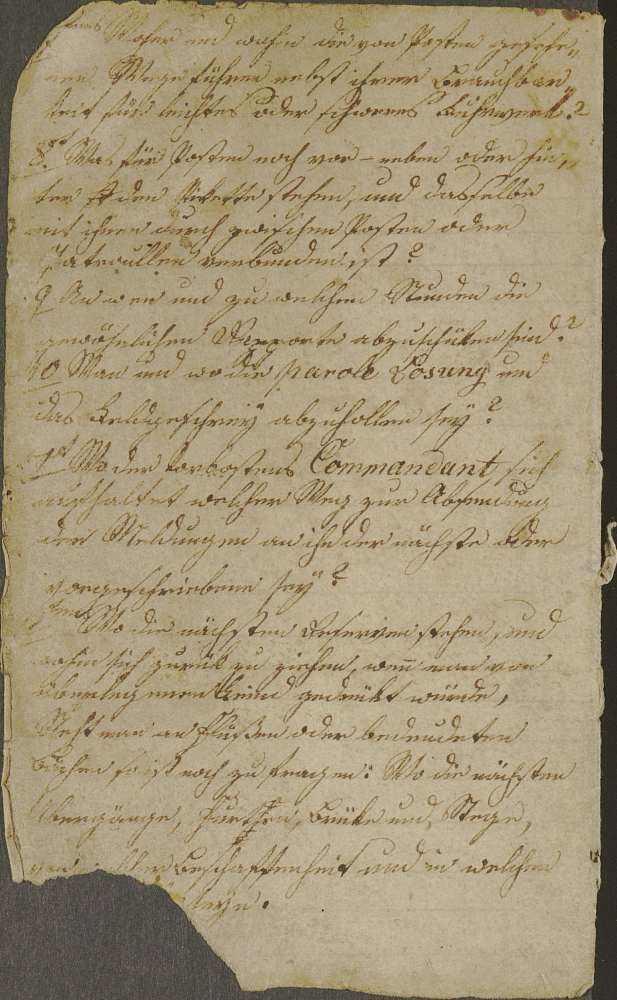 7tens Woher und wohin die von Posten gesehe„
nen Wege führen nebst ihrer Brauchbar
keit für leichtes oder schweres Fuhrwerk?
8. Was für Posten noch vor – neben oder hin„
ter den Vedette stehen, und dasselbe
mit ihnen durch zwischen Posten oder
Patroullen verbunden ist?
9 An wen und zu welchen Stunden die
gewöhnlichen Rapporte abzuschüken sind?
10 Wan und wo die Parole Losung und
das Feldgeschrey abzuhollen sey?
Wo der Vorpostens Commandant sich
aufhaltet welcher Weg zur Absendung
der Meldungen an ihn der nächste oder
vorgeschriebene sey?
Wo die nächsten Reserven stehen, und
wohin sich zurük zu ziehen, wen man von
überlegenen Feind gedrükt würde,
Steht man an Flüßen oder bedeudeten
Bächen so ist noch zu fragen: Wo die nächsten
Übergänge, Furthen, Brüke und Stege,
von Beschaffenheit und in welchen
seye.